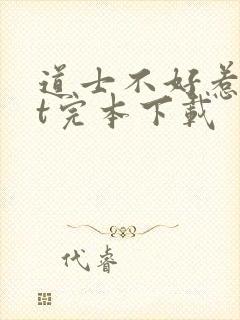 道士不好惹
t完本下载
代睿